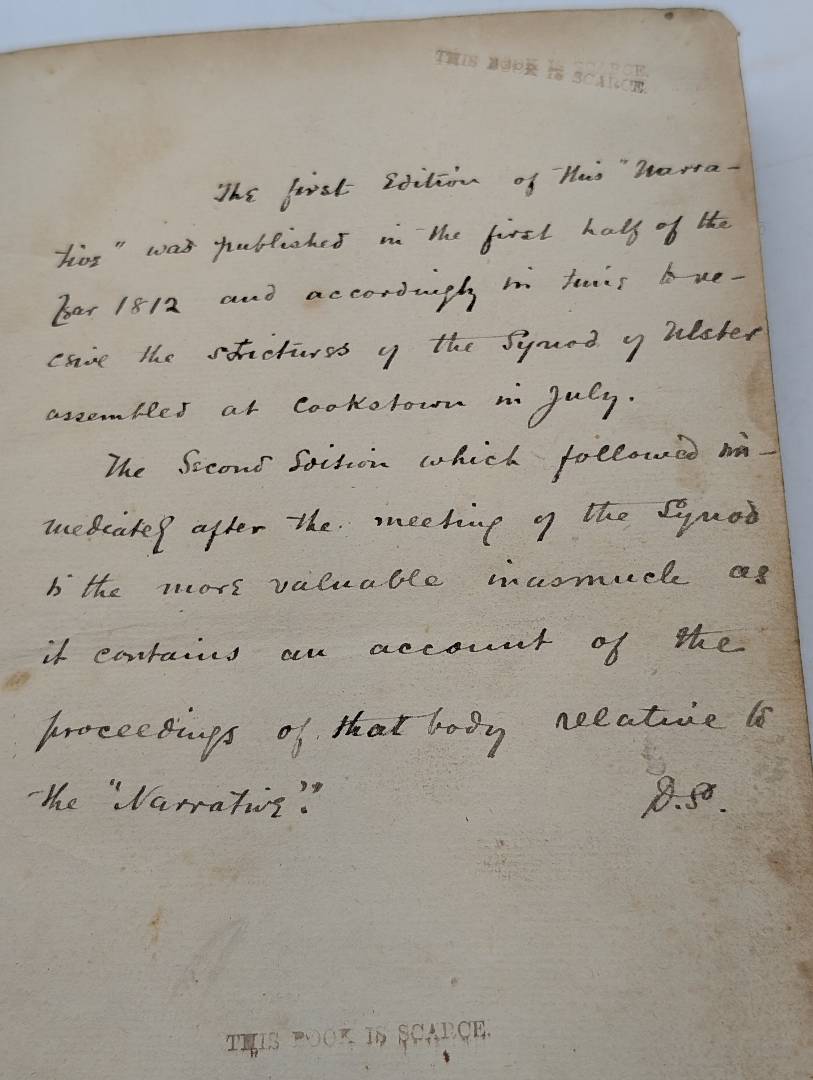 THIS BOOK IS SCARCE.
THIS BOOK IS SCARCE.
The first Edition of this "Narra-
tive" was published in the first half of the
Year 1812 and accordingly in time to re-
ceive the strictures of the Synod of Ulster
assembled at Cookstown in July.
The Second Edition which followed im-
mediately after the meeting of the Synod
is the more valuable inasmuch as
it contains an account of the
proceedings of that body relative to
the "Narrative".
D.S.
THIS BOOK IS SCARCE.